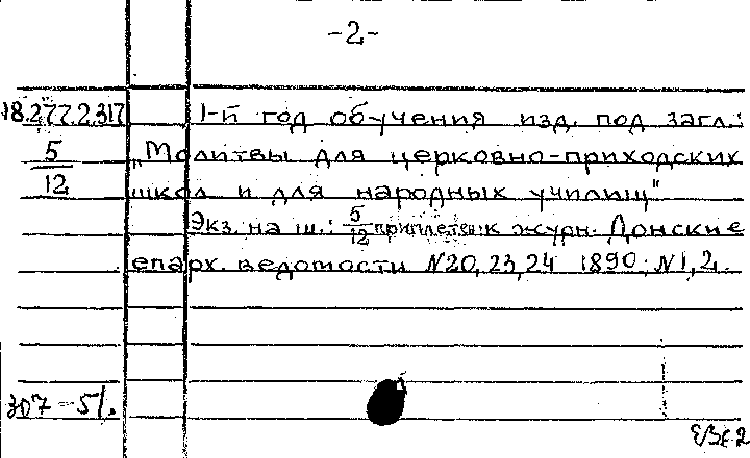 -2-
18.277.2.317 1-й год обучения изд. под загл.:
5/12 „Молитвы для церковно-приходских
школ и для народных училищ"
Экз. на ш.: 5/12 приплетен к журн. Донские
епарх. ведомости N20, 23, 24 1890; N1, 2.
307-51.